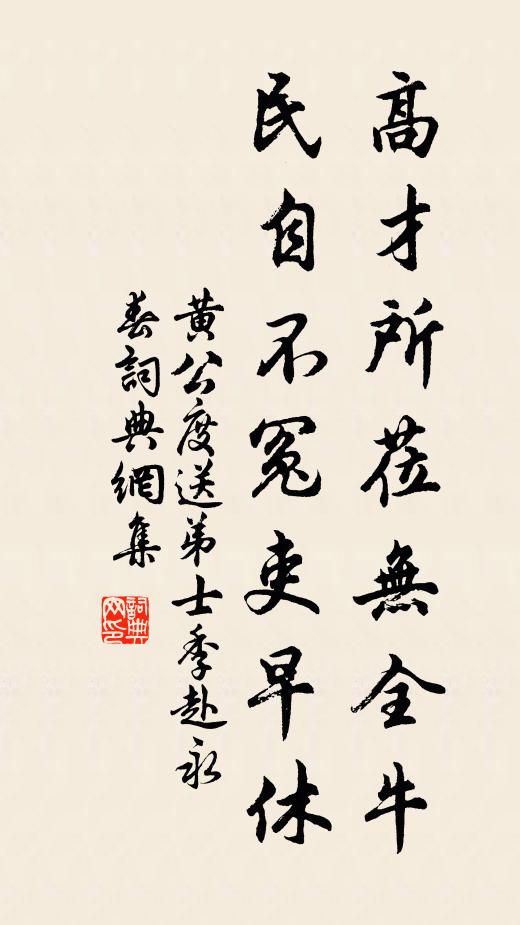 高才所莅無全牛
民自不冤吏早休
黃公度送弟士季赴永
春詞典網集
詞典
网印